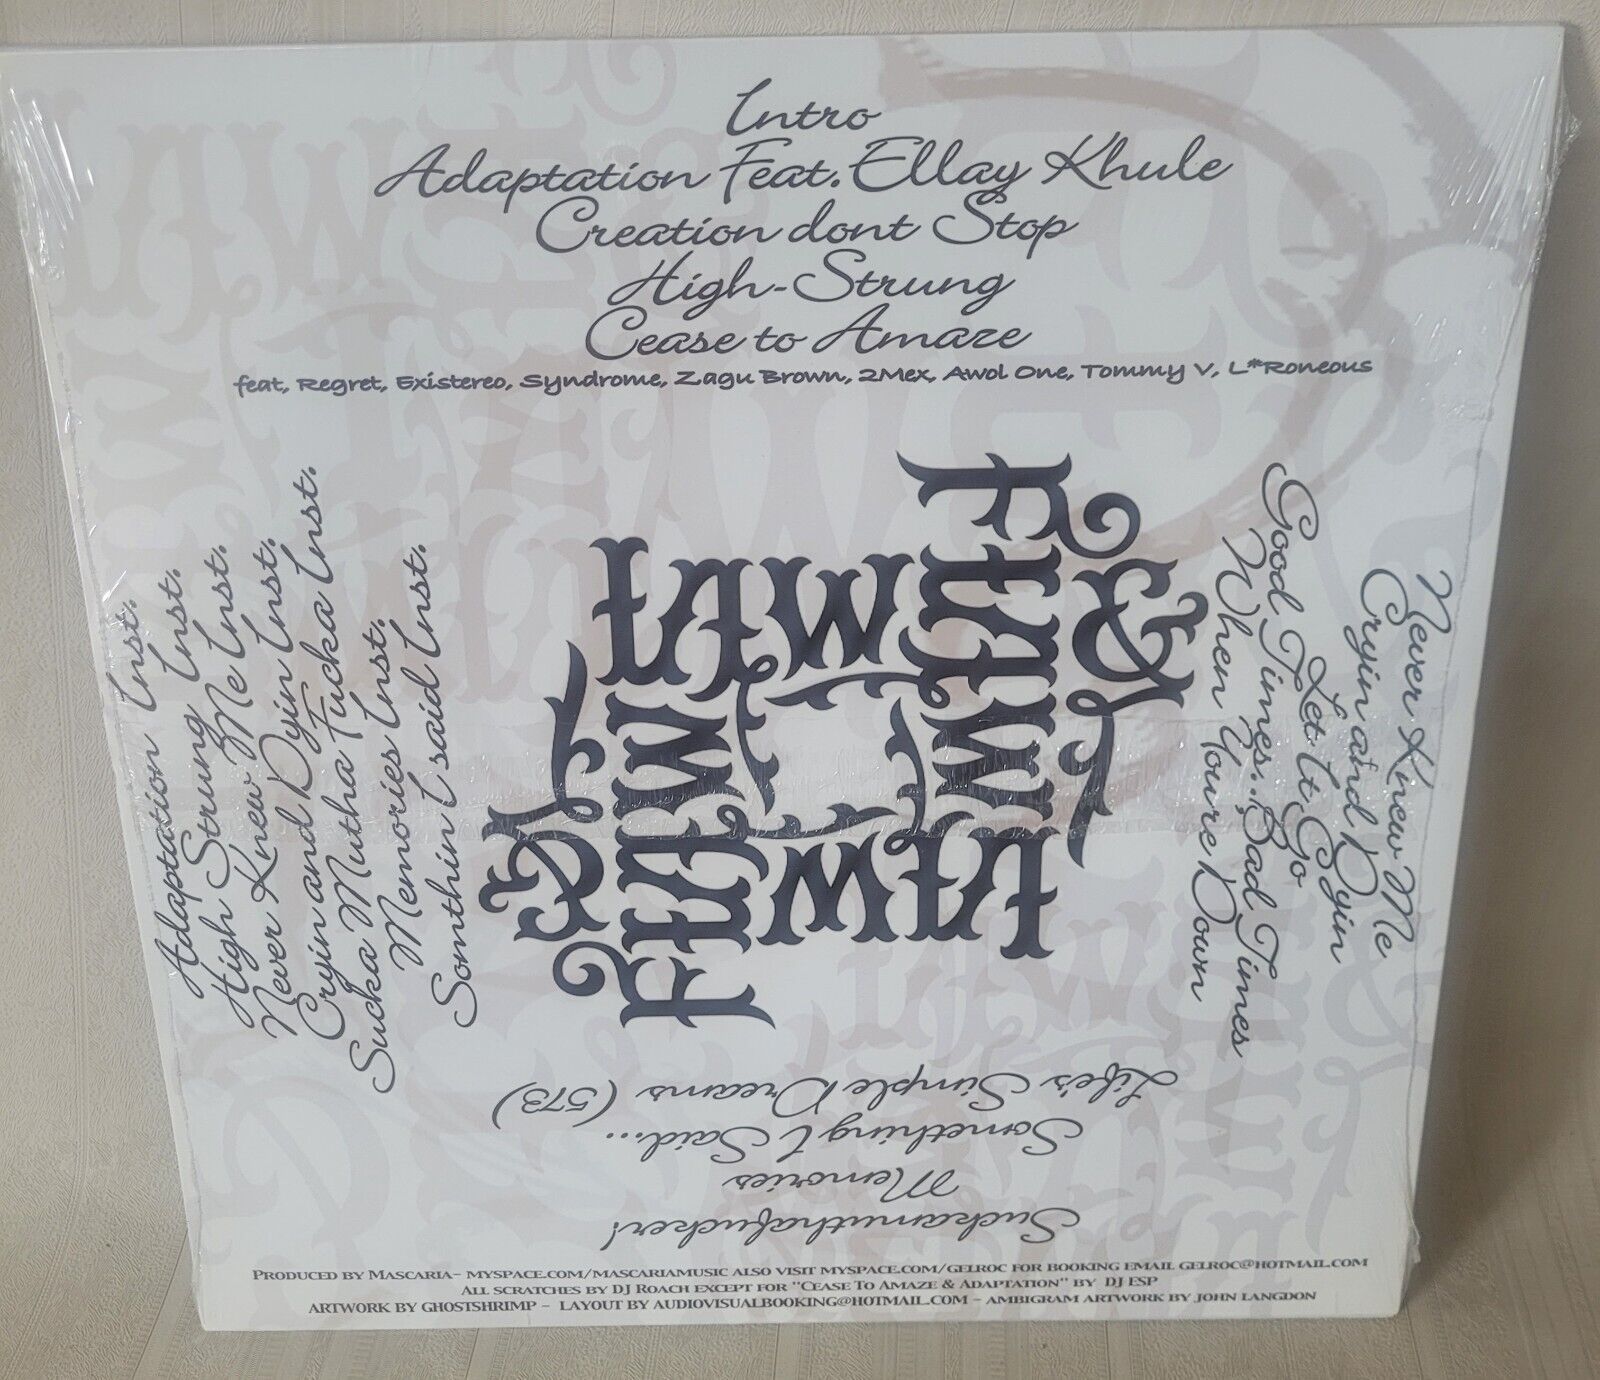 Intro
Adaptation Feat. Ellay Khule
Creation dont Stop
High-Strung
Cease to Amaze
feat, Regret, Existereo, Syndrome, Zagu Brown, 2Mex, Awol One, Tommy V, L*Roneous
Never Knew Me
Cryin and Dyin
Let It Go
Good Times.. Bad Times
When You're Down
Life's Simple Dreams (573)
Something I Said...
Memories
Suckamuthafucker!
Adaptation Inst.
High Strung Inst.
Never Knew Me Inst.
Cryin and Dyin Inst.
Sucka Mutha Fucka Inst.
Memories Inst.
Somthin I said Inst.
&
Produced by Mascaria- myspace.com/mascariamusic also visit myspace.com/gelroc for booking email gelroc@hotmail.com
All scratches by DJ Roach except for "Cease To Amaze & Adaptation" by DJ ESP
artwork by ghostshrimp - layout by audiovisualbooking@hotmail.com - ambigram artwork by John Langdon